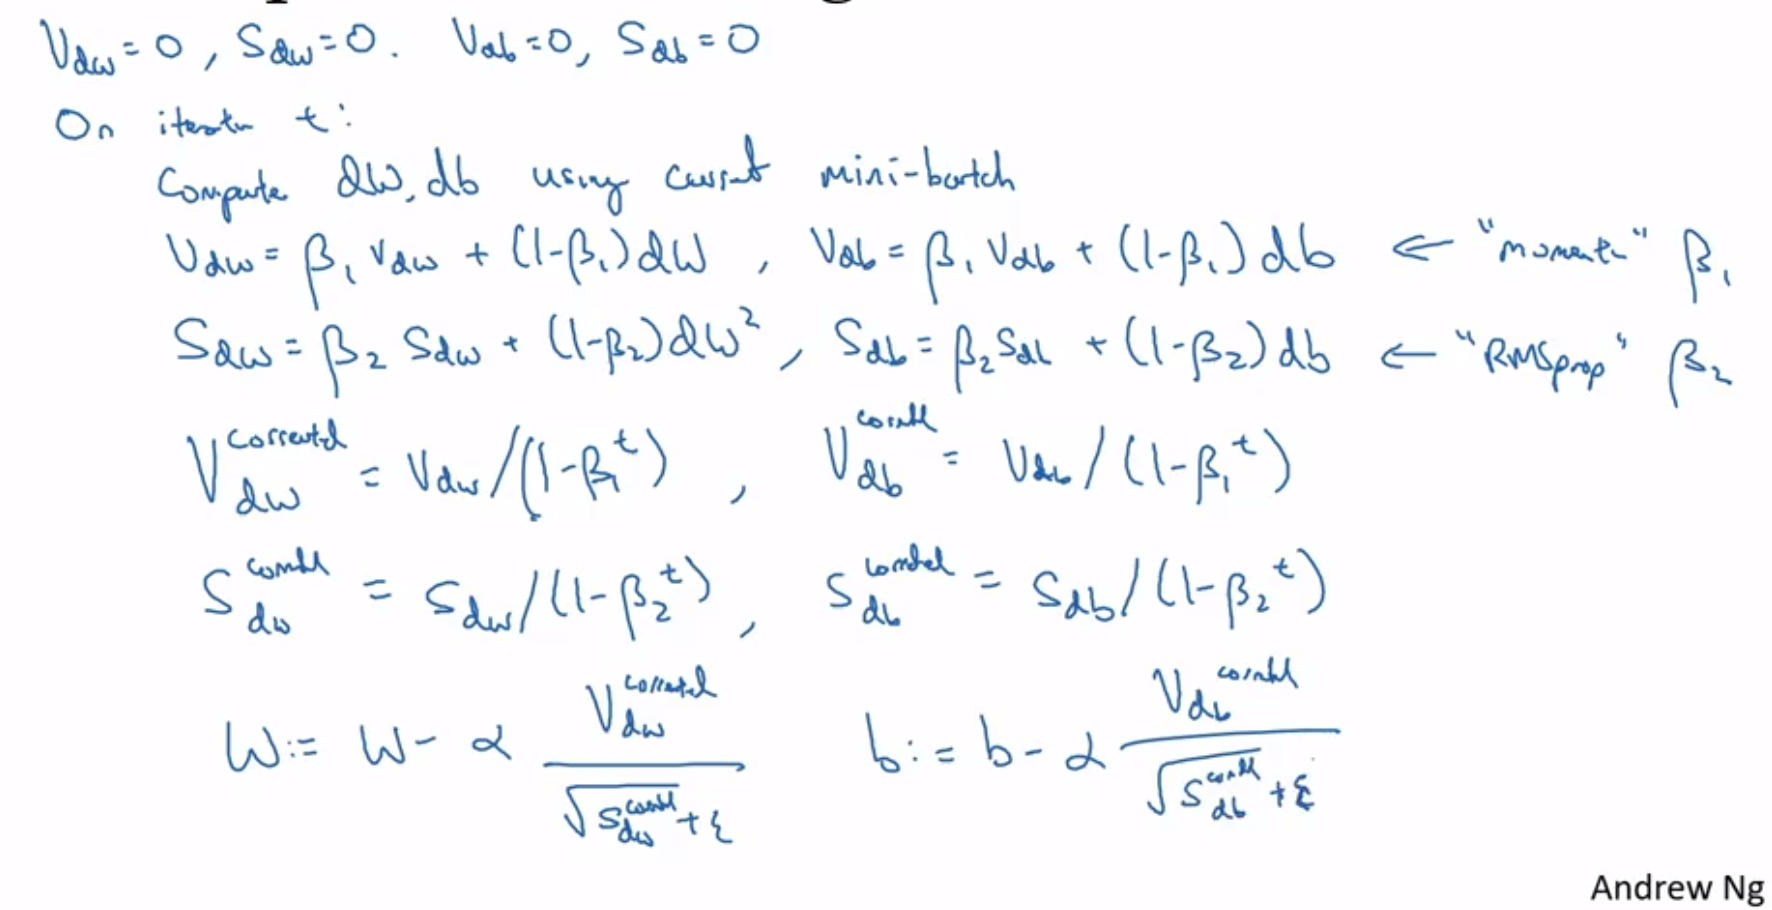 V_dw = 0, S_dw = 0. V_db = 0, S_db = 0
On iteratn t:
Compute dW, db using current mini-batch
V_dw = β₁ V_dw + (1-β₁) dW, V_db = β₁ V_db + (1-β₁) db ← "moment" β₁
S_dw = β₂ S_dw + (1-β₂) dW², S_db = β₂ S_db + (1-β₂) db ← "RMSprop" β₂
V_dw^corrected = V_dw / (1-β₁^t), V_db^corrected = V_db / (1-β₁^t)
S_dw^corrected = S_dw / (1-β₂^t), S_db^corrected = S_db / (1-β₂^t)
W := W - α V_dw^corrected / (√S_dw^corrected + ε) b := b - α V_db^corrected / (√S_db^corrected + ε)
Andrew Ng